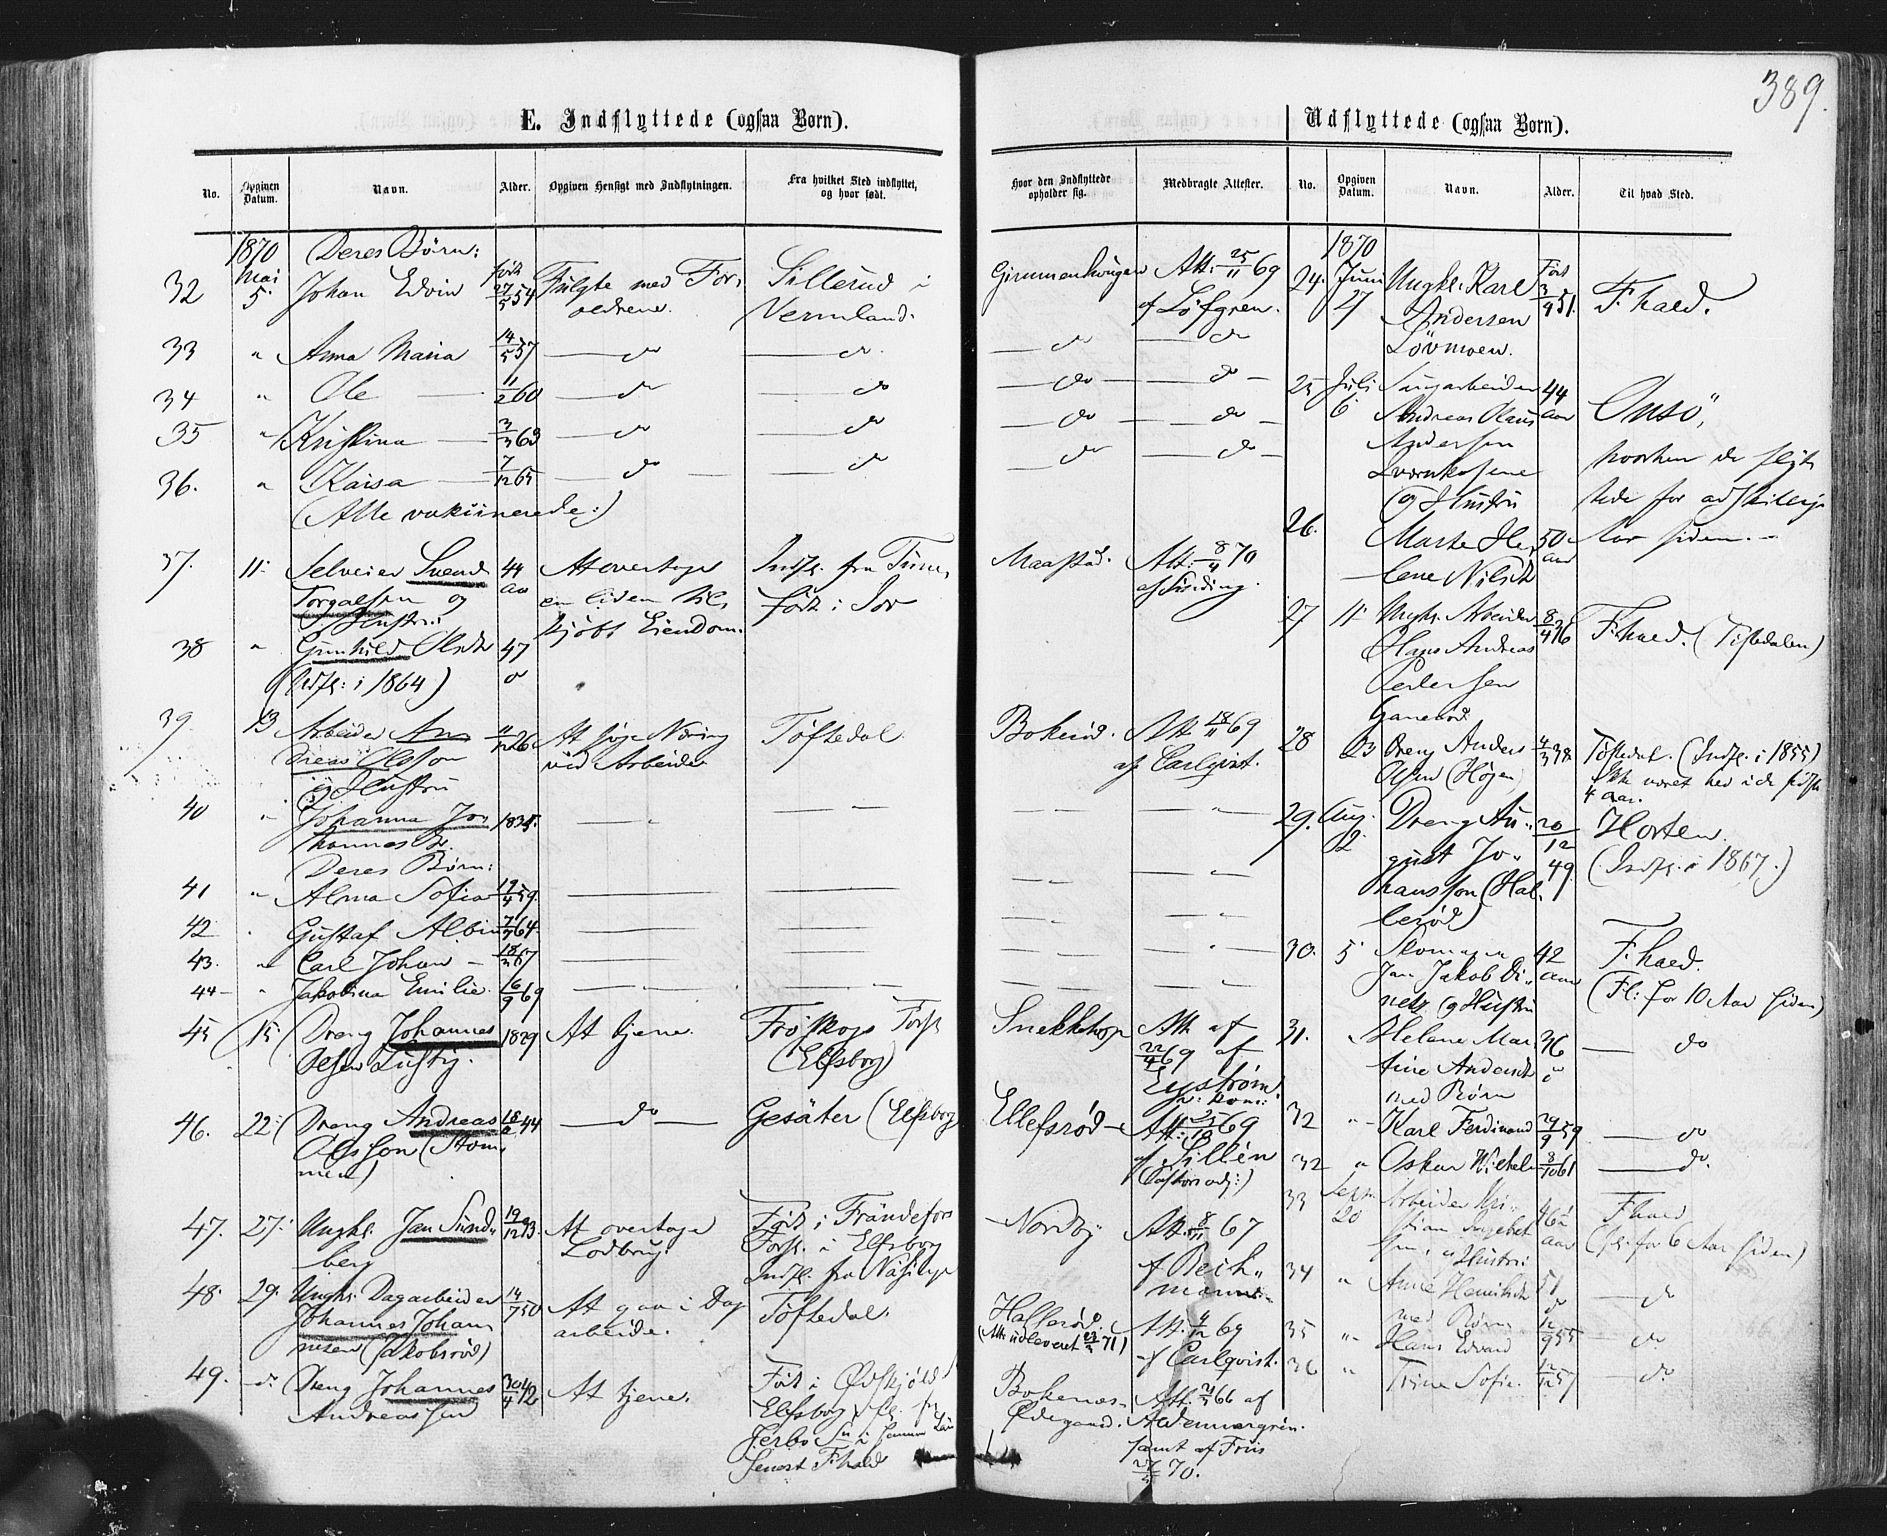 389.
E. Indflyttede (ogsaa Børn).
No. Opgiven Datum. Navn. Alder. Opgiven Hensigt med Indflytningen. Fra hvilket Sted indflyttet, og hvor født.
Hvor den Indflyttede opholder sig. Medbragte Attester.
1870 Deres Børn:
32 Mai 5. Johan Edvin født 27/5 54 Fulgte med Forældrene. Sillerud i Vermland.
Att. 25/11 69 af Löfgren.
33 " Anna Maria 14/5 57 — do — do
— do — do
34 " Ole 11/2 60 — do — do
— do — do —
35 " Kristina 3/3 63 — do — do
— do — do —
36. " Kaisa 7/12 65 — do — do
— do — do —
(Alle vakcinerede:)
37. 11. Selveier Svend Torgalsen og Hustru 44 At overtage en liden til- kjøbt Eiendom. Indfl. fra Tune, født i
Maastad. Att. 8/4 70
38 " Gunhild Olsdt 47
(Udfl: i 1864)
39 13 Arbeider Andreas Olsson og Hustru At søge Næring ved Arbeide Töftedal.
Bokerød. Att 18/11 69 af Carlqvist.
40 " Johanna Johannesdr. 1834.
Deres Børn:
41 " Alma Sofia 19/4 59.
42 Gustaf Albin 64.
43. " Carl Johan 67
44 " Jakobina Emilie. 16/9 69
45 15 Dreng Johannes Olsen Lustig. 1829 At tjene. Fröskogs Forsl (Elfsborg)
Snekkotorp Att af 22/4 69 af Egström
46. 22: Dreng Andreas Olsson (Stommen) 44 — do — Gesäter (Elfsborg
Ellefsrød Att: 69 af Sillén (Pastorsadj:)
47. 27: Ungk. Jan Sundberg 19/12 43. At overtage Lodbrug. Født i Frändefors Forsl. i Elfsborg Indfl. fra
Nordby Att. 8/11 67 af Bechmann
48. 29. Ungk: Dagarbeider Johannes Johannesen (Jakobsrød) 14/7 50 At gaa i Dagarbeide. Töftedal.
Hallerød. (Att udleveret 71) Att. 4/12 69 af Carlqvist.
49. Dreng Johannes Andreassen 30/4 42 At tjene. Født i Ödskjöld Elfsborg senest Fhald
Bokenæs Ødegaard. Att. 66 af
samt af Friis
70.
Udflyttede (ogsaa Børn).
No. Opgiven Datum. Navn. Alder. Til hvad Sted.
1870
24. Juni 27 Ungk: Karl Andersen Løvmoen. Født 3/4 51. Fhald.
25 Juli 6 Sagarbeider Andreas Olaus Andersen og Hustru 44 aar Onsø, hvorhen de flyttede for adskillige Aar siden.
26. Marte Helene Nilsdt 50 aar
27 11 Ungk. Arbeider Hans Andreas Pedersen 8/4 46 Fhald. (Tistedalen)
28 23 Dreng Anders Olsen (Högen) 4/3 38 Töftedal. (Indfl. i 1855) Ikke været her i de sidste 4 aar.
29. Aug. 2. Dreng August Johansson (Hallerød) 20/12 49. Horten. (Indfl. i 1867.)
30. 5 Skomager Jan Jakob Dinetz og Hustru 42 aar Fhald. (Fl: for 10 Aar siden)
31. " Helene Martine Andersdt med Børn 36 — do
32 " Karl Ferdinand 29/9 59 — do
32 " Oskar Vilhelm 8/10 61 — do.
33 Septm 20 Arbeider Kristian og Hustru 46 aar Fhald (fl. for 6 Aar siden)
34 " Anne Henriksdt med Børn 51 — do
35 " Hans Edvard 12/9 55 — do
36 " Trine Sofie. 12/12 57 — do